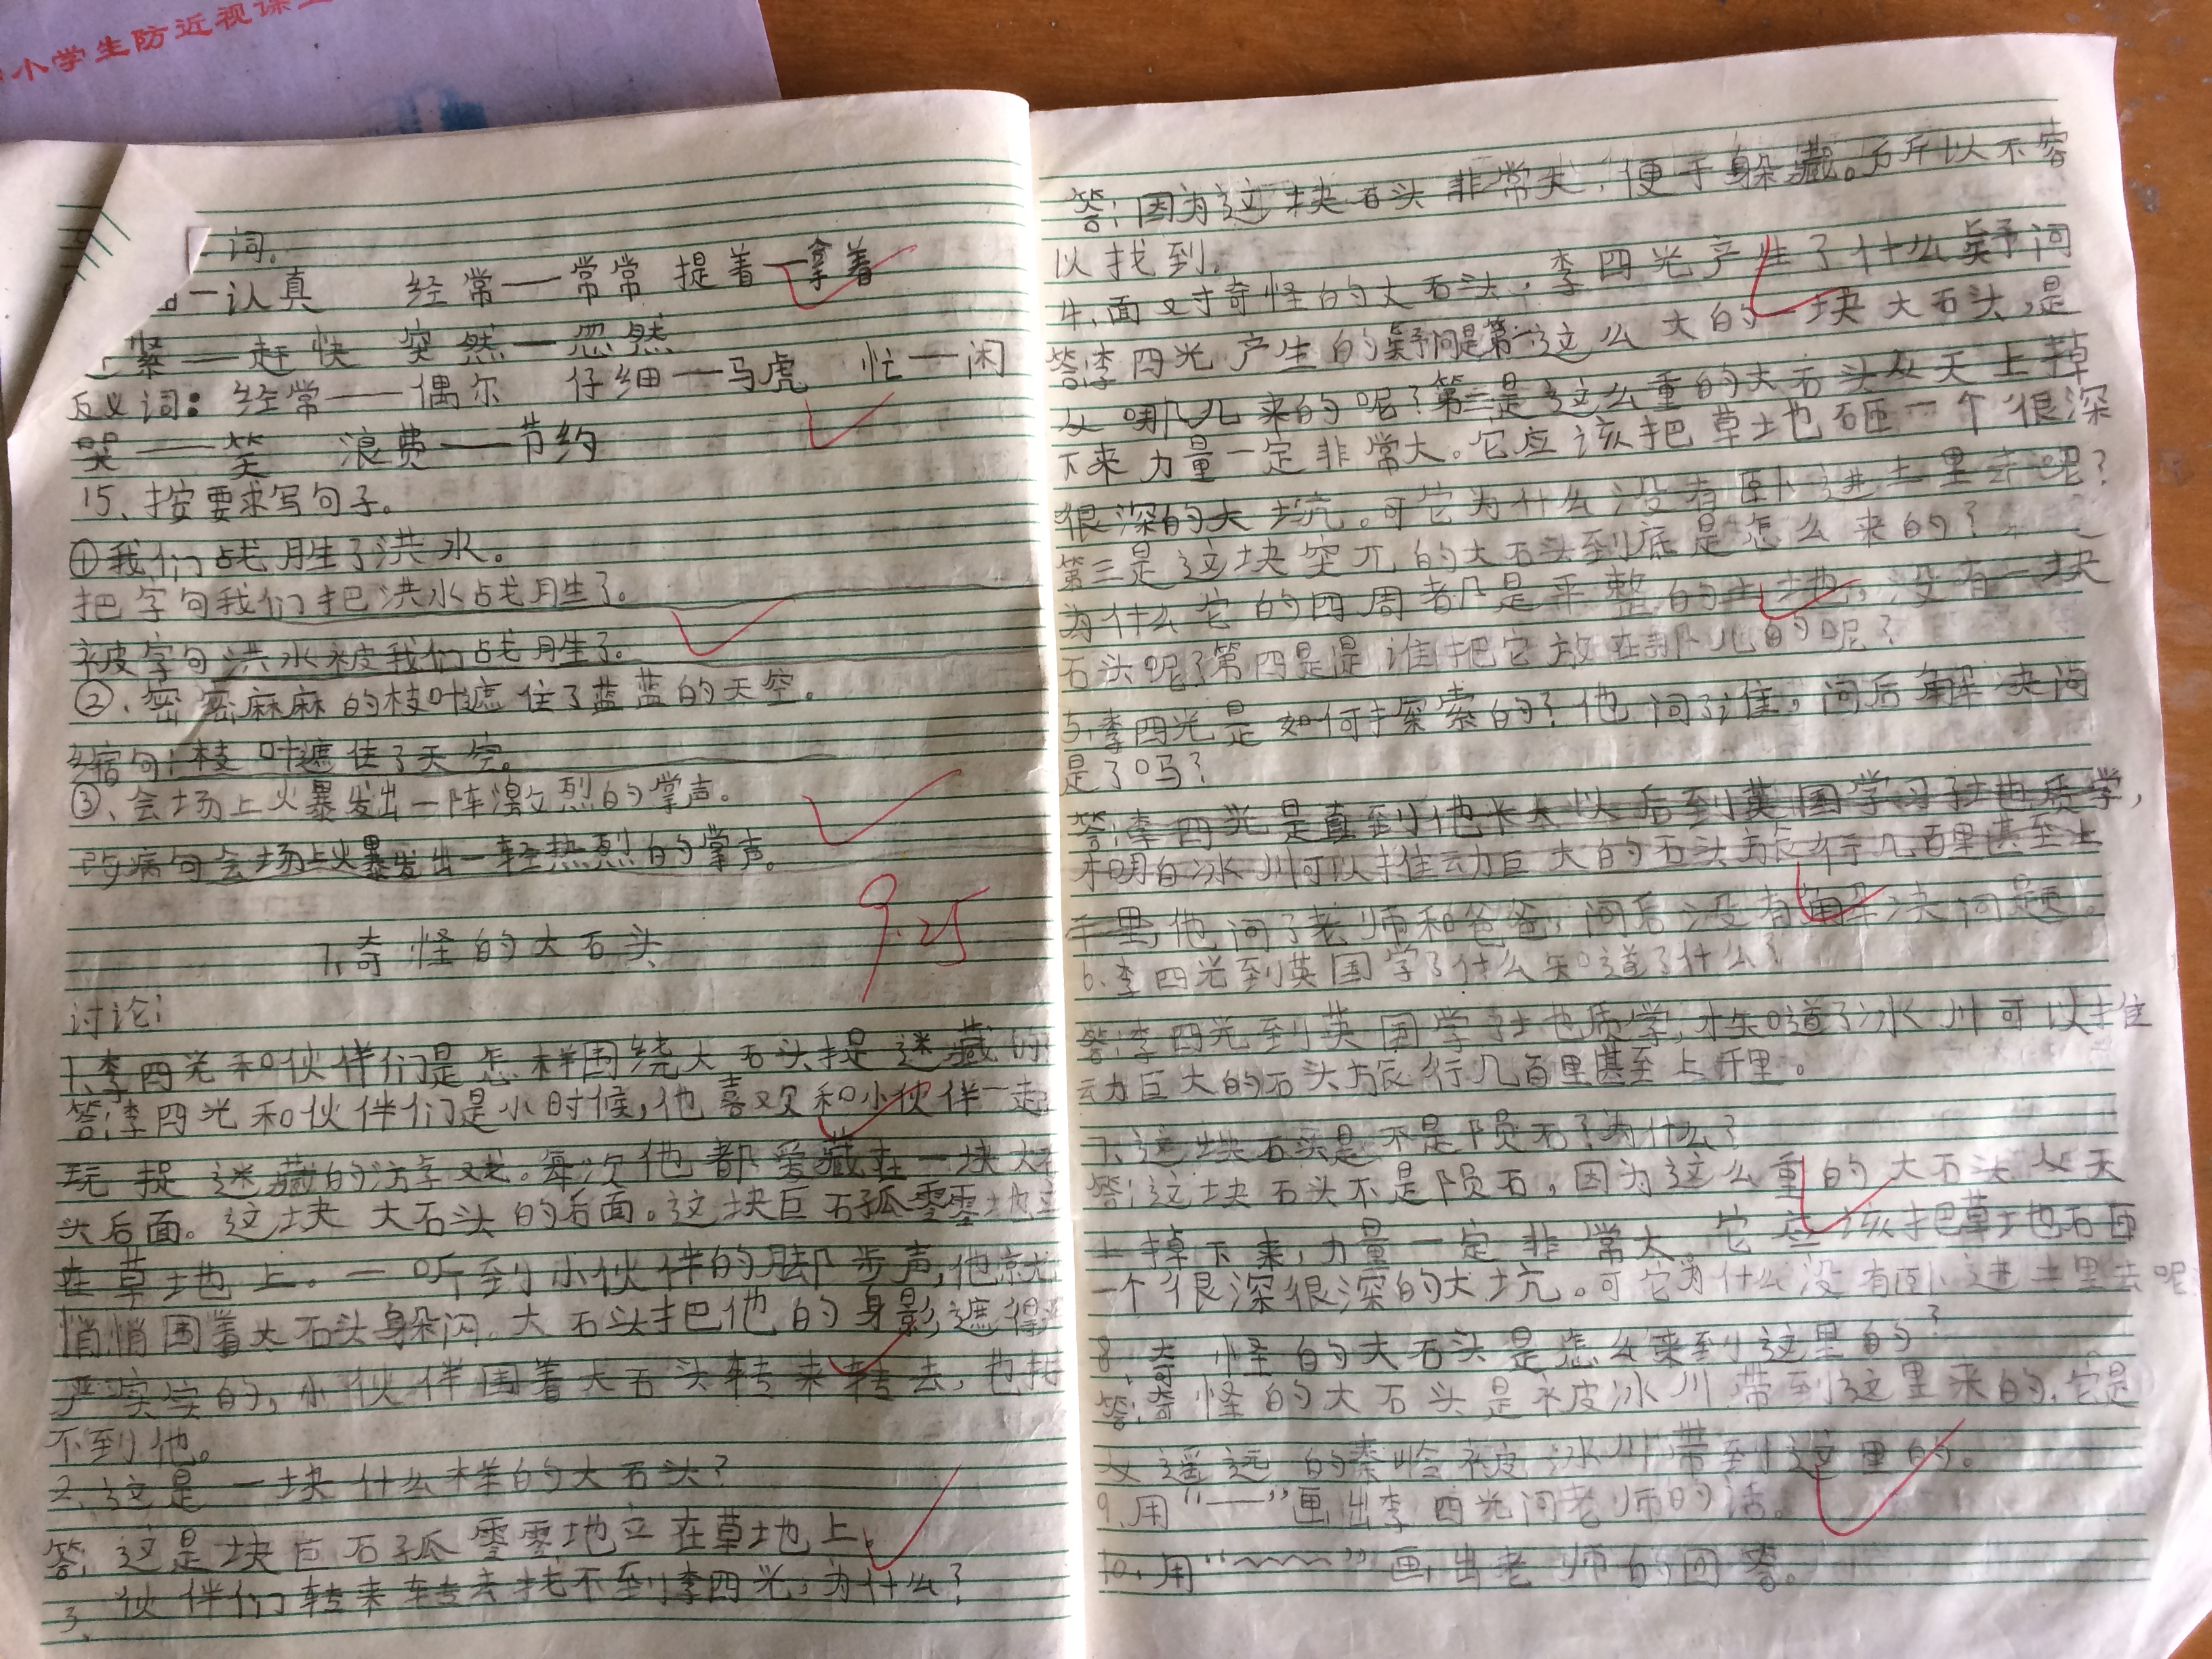 小学生防近视课
词。
一认真 经常一常常 提着一拿着
紧——赶快 突然一忽然
反义词：经常——偶尔 仔细一马虎 忙一闲
哭——笑 浪费——节约
15、按要求写句子。
①我们战胜了洪水。
把字句我们把洪水战胜了。
被字句洪水被我们战胜了。
②、密密麻麻的枝叶遮住了蓝蓝的天空。
缩句：枝叶遮住了天空。
③、会场上火暴发出一阵激烈的掌声。
改病句会场上火暴发出一轻热烈的掌声。
9.25
7、奇怪的大石头
讨论：
1、李四光和伙伴们是怎样围绕大石头捉迷藏的
答：李四光和伙伴们是小时候，他喜欢和小伙伴一起
玩捉迷藏的游戏。每次他都爱藏在一块大石
头后面。这块大石头的后面。这块巨石孤零零地立
在草地上。一听到小伙伴的脚步声，他就
悄悄围着大石头躲闪。大石头把他的身影遮得
严实实的，小伙伴围着大石头转来转去，也找
不到他。
2、这是一块什么样的大石头？
答：这是块巨石孤零零地立在草地上。
3、伙伴们转来转去找不到李四光，为什么？
答：因为这块石头非常大，便于躲藏。所以不容
以找到。
4、面对奇怪的大石头，李四光产生了什么疑问
答：李四光产生的疑问是第一这么大的一块大石头，是
从哪儿来的呢？第二是这么重的大石头从天上掉
下来力量一定非常大。它应该把草地砸一个很深
很深的大坑。可它为什么没有卧进土里去呢？
第三是这块突兀的大石头到底是怎么来的？
为什么它的四周都是平整的土地，没有一块
石头呢？第四是是谁把它放在那儿的呢？
5、李四光是如何探索的？他问了谁，问后解决问
是了吗？
答：李四光是直到他长大以后到英国学习地质学，
才明白冰川可以推动巨大的石头旅行几百里甚至上
千里，他问了老师和爸爸，问后没有解决问题。
6、李四光到英国学了什么知道了什么？
答：李四光到英国学地质学，才知道了冰川可以推
动巨大的石头旅行几百里甚至上千里。
7、这块石头是不是陨石？为什么？
答：这块石头不是陨石，因为这么重的大石头从天
上掉下来，力量一定非常大，它应该把草地砸
一个很深很深的大坑。可它为什么没有卧进土里去呢
8、奇怪的大石头是怎么来到这里的？
答：奇怪的大石头是被冰川带到这里来的，它是
从遥远的秦岭被冰川带到这里的。
9、用“——”画出李四光问老师的话。
10、用“﹏﹏”画出老师的回答。